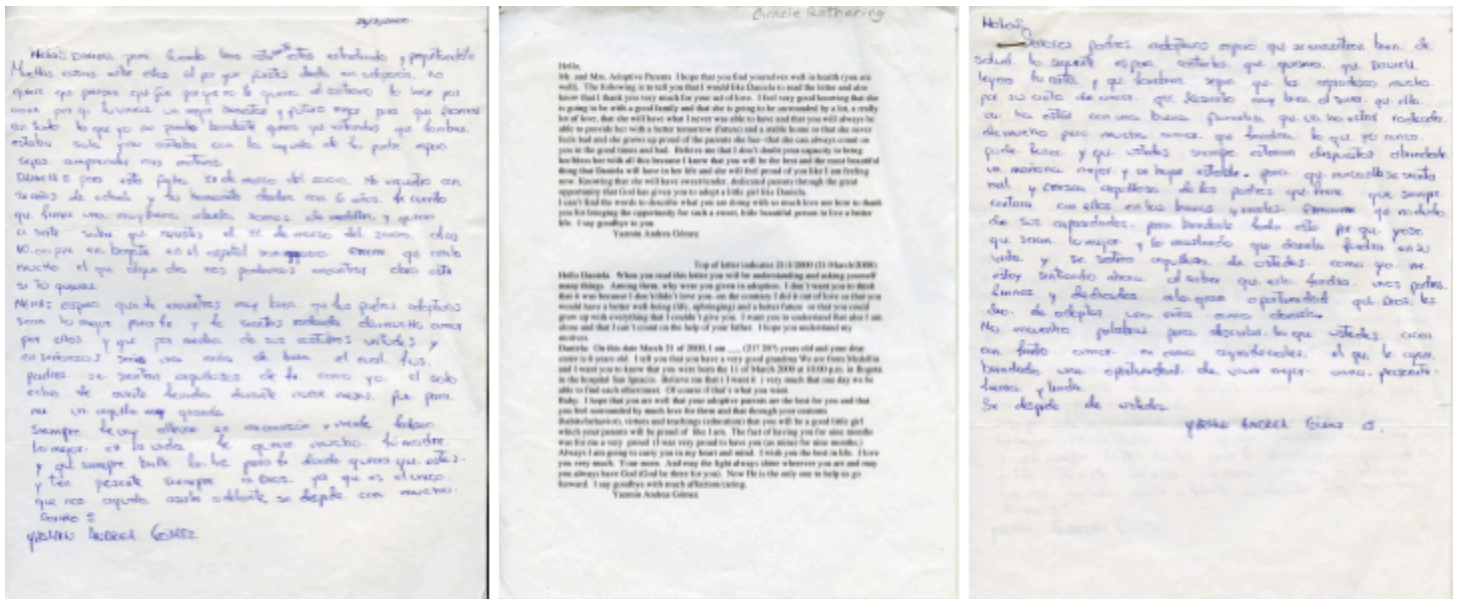 21/3/2000
Hola: Daniela para cuando leas esta estes entendiendo y preguntandote
Muchas cosas entre ellas el por que fuistes dada en adopcion. no
quiero que pienses que fue porque no te queria al contrario lo hice por
amor por q tuvieras un mejor bienestar y futuro mejor para que
en todo lo que yo no puedo brindarte quiero que entiendas que tambien
estaba sola y no contaba con la ayuda de tu padre espero
sepas comprender mis motivos.
Daniela: para esta fecha 21 de marzo del 2000. Me encuentro con
años de edad y tu hermanita con 6 años. te cuento
que tienes una muy buena abuela somos de medellin, y quiero
saber que nacistes el 11 de marzo del 2000. alas
10:00 pm en bogota en el ospital san ignacio creeme que anelo
mucho el que algun dia nos podamos encontrar. claro esta
si tu quieres.
Nena: espero que te encuentres muy bien que tus padres adoptivos
sean lo mejor para ti y te sientas rodeada de mucho amor
por ellos y que por medio de sus costumbres virtudes y
enseñanzas seas una niña de bien el cual tus
padres se sientan orgullosos de ti como yo. el solo
echo de averte tenido durante nueve meses. fue para
me un orgullo muy grande
Siempre te voy allevar en mi corazon y mente deseo
lo mejor en la vida. te quiere mucho. tu madre.
y que siempre brille la luz para ti donde quiera que estes.
y ten presente siempre a Dios. ya que es el unico
que nos ayuda asalir adelante, se despide con mucho
Cariño
YASMIN ANDREA GOMEZ
Gracie Rathering
Hello,
Mr. and Mrs. Adoptive Parents I hope that you find yourselves well in health (you are
well). The following is to tell you that I would like Daniela to read the letter and also
know that I thank you very much for your act of love. I feel very good knowing that she
is going to be with a good family and that she is going to be surrounded by a lot, a really
lot of love, that she will have what I never was able to have and that you will always be
able to provide her with a better tomorrow (future) and a stable home so that she never
feels bad and she grows up proud of the parents she has–that she can always count on
you in the good times and bad. Believe me that I don't doubt your capacity to bring
her/bless her with all this because I know that you will be the best and the most beautiful
thing that Daniela will have in her life and she will feel proud of you like I am feeling
now. Knowing that she will have sweet/tender, dedicated parents through the great
opportunity that God has given you to adopt a little girl like Daniela.
I can't find the words to describe what you are doing with so much love nor how to thank
you for bringing the opportunity for such a sweet, little beautiful person to live a better
life. I say goodbye to you.
Yazmin Andrea Gómez
Top of letter indicates 21/3/2000 (21/March/2000)
Hello Daniela. When you read this letter you will be understanding and asking yourself
many things. Among them, why were you given in adoption. I don't want you to think
that it was because I don't/didn't love you–on the contrary I did it out of love so that you
would have a better well being (life, upbringing) and a better future so that you could
grow up with everything that I couldn't give you. I want you to understand that also I am
alone and that I can't count on the help of your father. I hope you understand my
motives.
Daniela: On this date March 21 of 2000, I am ___ (21? 20?) years old and your dear
sister is 6 years old. I tell you that you have a very good grandma We are from Medellin
and I want you to know that you were born the 11 of March 2000 at 10:00 p.m. in Bogota
in the hospital San Ignacio. Believe me that ( I want it ) very much that one day we be
able to find each other/meet. Of course if that's what you want.
Baby. I hope that you are well that your adoptive parents are the best for you and that
you feel surrounded by much love for them and that through your customs
(habits/behavior), virtues and teachings (education) that you will be a good little girl
which your parents will be proud of like I am. The fact of having you for nine months
was for me a very proud (I was very proud to have you (as mine) for nine months.)
Always I am going to carry you in my heart and mind. I wish you the best in life. I love
you very much. Your mom. And may the light always shine wherever you are and may
you always have God (God be there for you). Now He is the only one to help us go
forward. I say goodbye with much affection/caring.
Yazmin Andrea Gómez
Hola:
Señores padres adoptivos espero que se encuentren bien de
salud. lo siguiente es para contarles que quisiera que Daniela
leyera la carta y que tambien sepan que les agradezco mucho
por su acto de amor. que me siento muy bien al saber que ella
va ha estar con una buena familia que va ha estar rodeada
de mucho pero mucho amor. que tendra lo que yo nunca
pude tener y que ustedes siempre estaran dispuestos abrindarle
un mañana mejor. y un hogar estable. para que nunca ella se sienta
mal y cresca orgullosa de los padres que tiene. que siempre
contara con ellos en las buenas y malas. creanme que no dudo
de sus capacidades. para brindarle todo esto por que yo se
que seran lo mejor y lo mas lindo que daniela tendra en su
vida y se sentira orgullosa de ustedes. como yo me
estoy sintiendo ahora al saber que ella tendra unos padres
tiernos y dedicados ala gran oportunidad que Dios les
dio. de adoptar una niña como daniela.
No encuentro palabras para describir lo que ustedes asen
con tanto amor. ni como agradecerles. el que le ayan
brindado una oportunidad de vivir mejor auna personita
tierna y linda.
Se despide de ustedes
YASMIN ANDREA GOMEZ G.